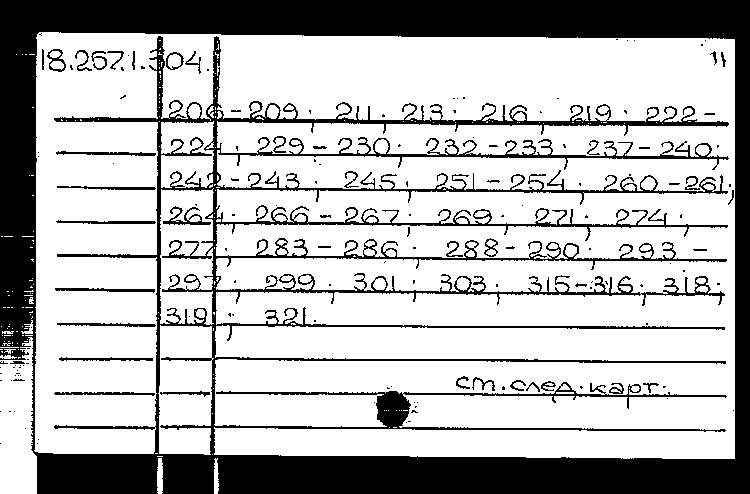 18.257.1.304. 11
206-209; 211; 213; 216; 219; 222-
224; 229-230; 232-233; 237-240;
242-243; 245; 251-254; 260-261;
264; 266-267; 269; 271; 274;
277; 283-286; 288-290; 293-
297; 299; 301; 303; 315-316; 318;
319; 321.
см. след. карт.